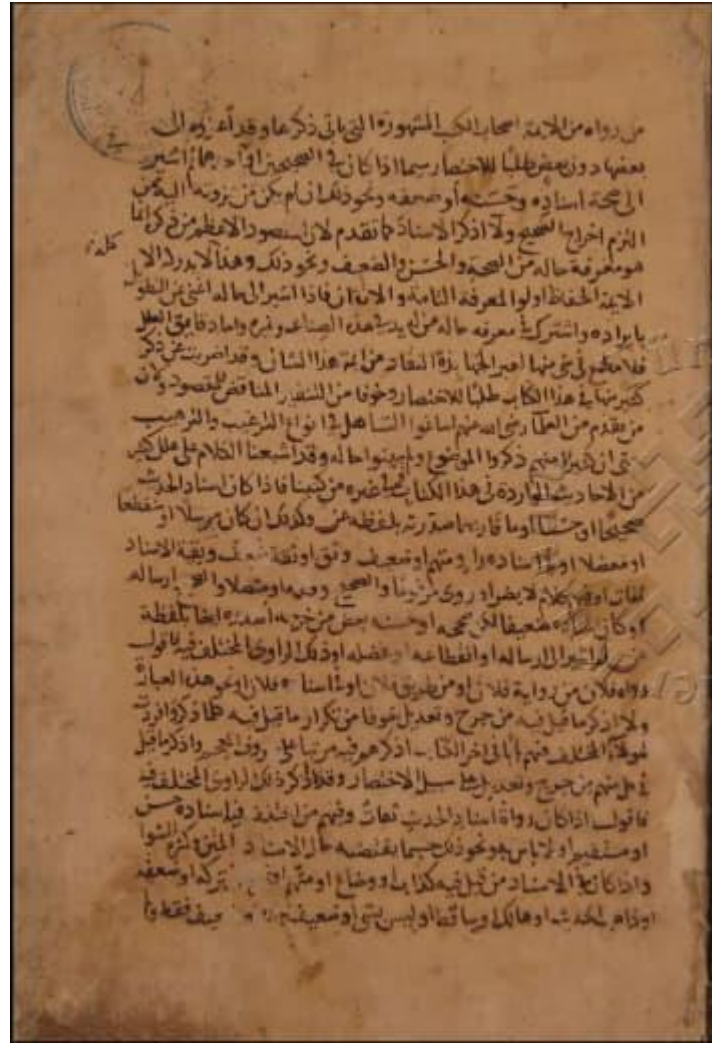 من رواه من الائمة اصحاب الكتب المشهورة التي ياتي ذكرها وقد أعزوه الى
بعضها دون بعض طلبًا للاختصار سيما اذا كان في الصحيحين او أحدهما ثم اشير
الى صحة اسناده وحسنه أو ضعفه ونحو ذلك ان لم يكن من عزوته اليه ممن
التزم اخراج الصحيح ولا اذكر الاسناد كما تقدم لان المقصود الاعظم من ذكره انما
هو معرفة حاله من الصحة والحسن والضعف ونحو ذلك وهذا لا يدركه الا
الايمة الحفاظ اولوا المعرفة التامة والاتقان فاذا اشير الى حاله اغنى عن التطويل
بايراده واشترك في معرفة حاله من له يد في هذه الصناعة وغيره واما دقايق العلل
فلا مطمع في شي منها لغير الجهابذة النقاد من ايمة هذا الشان وقد اضربت عن ذكر
كثير منها في هذا الكتاب طلبًا للاختصار وخوفا من التنفير المناقض للمقصود ولان
من تقدم من العلمآ رضي الله عنهم اساغوا التساهل في انواع الترغيب والترهيب
حتى ان كثيرا منهم ذكروا الموضوع ولم يبينوا حاله وقد اشبعنا الكلام على علل كثير
من الاحاديث الواردة في هذا الكتاب في غيره من كتبنا فاذا كان اسناد الحديث
صحيحًا او حسنًا او ما قاربهما صدرته بلفظة عن وكذلك ان كان مرسلا او منقطعا
او معضلا او في اسناده راو مبهم او ضعيف وثق او ثقة ضعف وبقية الاسناد
ثقات او فيهم كلام لا يضر او روى مرفوعا والصحيح وقفه او متصلا والصحيح ارساله
او كان اسناده ضعيفا لكن صححه او حسنه بعض من خرجه أصدره ايضا بلفظة
عن ثم اشير الى ارساله او انقطاعه او عضله او ذلك الراوى المختلف فيه فاقول
رواه فلان من رواية فلان او من طريق فلان او في اسناده فلان او نحو هذه العبارة
ولا اذكر ما قيل فيه من جرح وتعديل خوفا من تكرار ما قيل فيه كلما ذكر وافردت
لهولاء المختلف فيهم بابا في اخر الكتاب اذكرهم فيه مرتبا على حروف المعجم واذكر ما قيل
في كل منهم من جرح وتعديل على سبيل الاختصار وقد لا اذكر ذلك الراوى المختلف فيه
فاقول اذا كان رواة اسناد الحديث ثقات وفيهم من اختلف فيه اسناده حسن
او مستقيم او لا باس به ونحو ذلك حسبما يقتضيه حال الاسناد والمتن وكثرة الشواهد
واذا كان في الاسناد من قيل فيه كذاب او وضاع او متهم او مجمع على تركه او ضعفه
او ذاهب الحديث او هالك او ساقط او ليس بشي او ضعيف جدا او ضعيف فقط او
كلمة